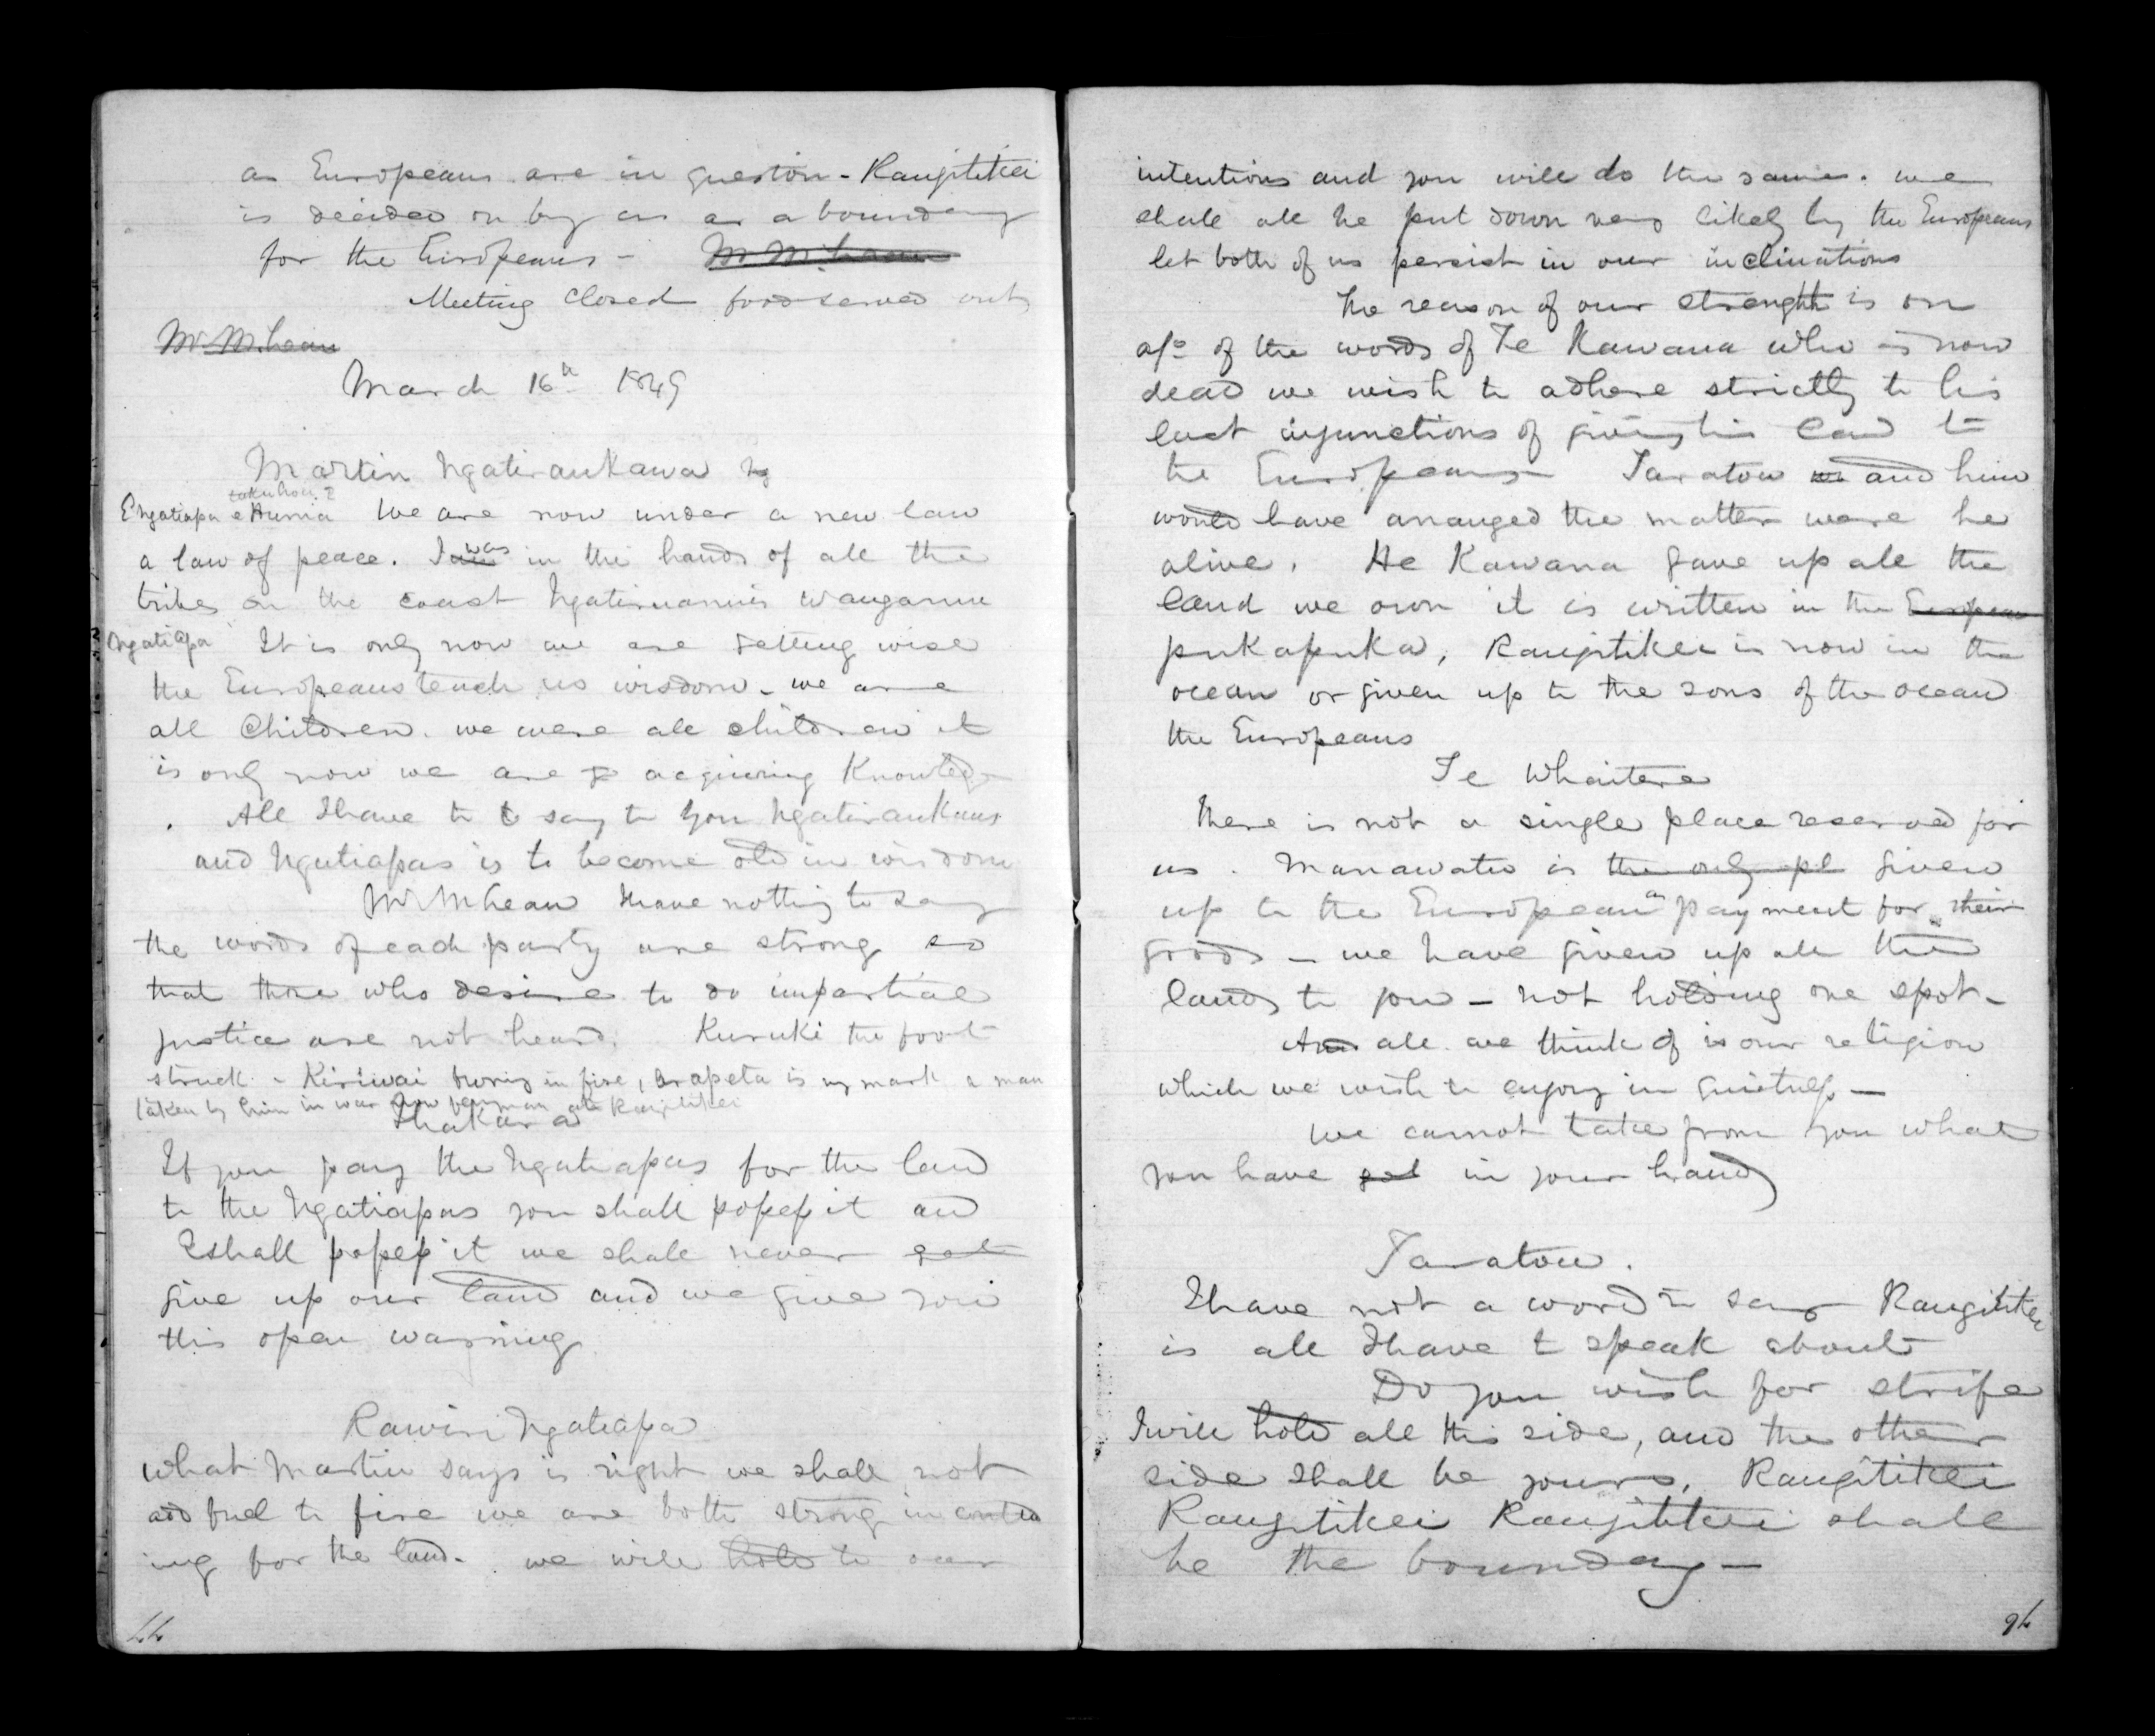 as Europeans are in question - Rangitikei
is decided on by us as a boundary
for the Europeans - Mr McLean
Meeting closed food served out
Mr McLean
March 16th 1849
Martin Ngatiraukawa
Engatiapa e Hunia We are now under a new law
a law of peace. I was in the hands of all the
tribes on the coast Ngatiruanuis Wanganui
Ngatiapa It is only now we are getting wise
the Europeans teach us wisdom - we are
all Children. we were all children it
is only now we are acquiring Knowledge
All I have to say to you Ngatiraukaua
and Ngatiapas is to become old in wisdom
Mr McLean I have nothing to say
the words of each party are strong so
that those who desire to do impartial
justice are not heard. Kuruki the foot
struck - Kiriwai burnig in fire, Arapeta is my mark a man
taken by him in war now at Rangitikei
Ihakara
If you pay the Ngatiapas for the land
to the Ngatiapas you shall possess it and
I shall possess it we shall never get
give up our land and we give you
this open warning
Rawiri Ngatiapa
what Martin says is right we shall not
add fuel to fire we are both strong in contend
ing for the land. we will hold to our
intentions and you will do the same. we
shall all be put down very likely by the Europeans
let both of us persist in our inclinations
The reason of our strenght is on
a/c of the words of Te Kawana who is now
dead we wish to adhere strictly to his
last injunctions of giving his land to
the Europeans Taratoa and him
would have arranged the matter were he
alive. He Kawana gave up all the
land we own it is written in the European
pukapuka, Rangitikei is now in the
ocean or given up to the sons of the ocean
the Europeans
Te Whaitere
There is not a single place reserved for
us. Manawatu is the only pl given
up to the European as payment for their
goods - we have given up all the
lands to you - not holding one spot -
And all we think of is our religion
which we wish to enjoy in quietness -
We cannot take from you what
you have got in your hand
Taratoa.
I have not a word to say Rangitikei
is all I have to speak about
Do you wish for strife
I will hold all this side, and the other
side shall be yours, Rangitikei
Rangitikei Rangitikei shall
be the boundary -